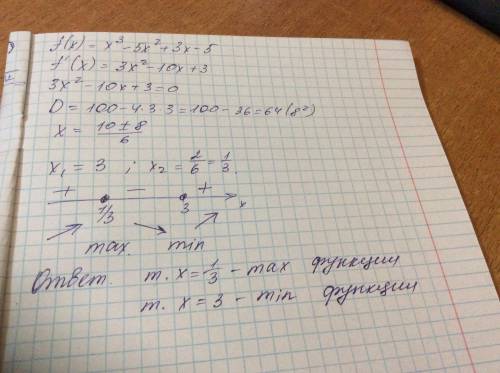 f(x) = x³ - 5x² + 3x - 5
f'(x) = 3x² - 10x + 3
3x² - 10x + 3 = 0
D = 100 - 4·3·3 = 100 - 36 = 64 (8²)
x = (10 ± 8)/6
x₁ = 3 ; x₂ = 2/6 = 1/3.
+ − +
1/3 3 x
max. min
Ответ. т. x = 1/3 - max функции
т. x = 3 - min функции